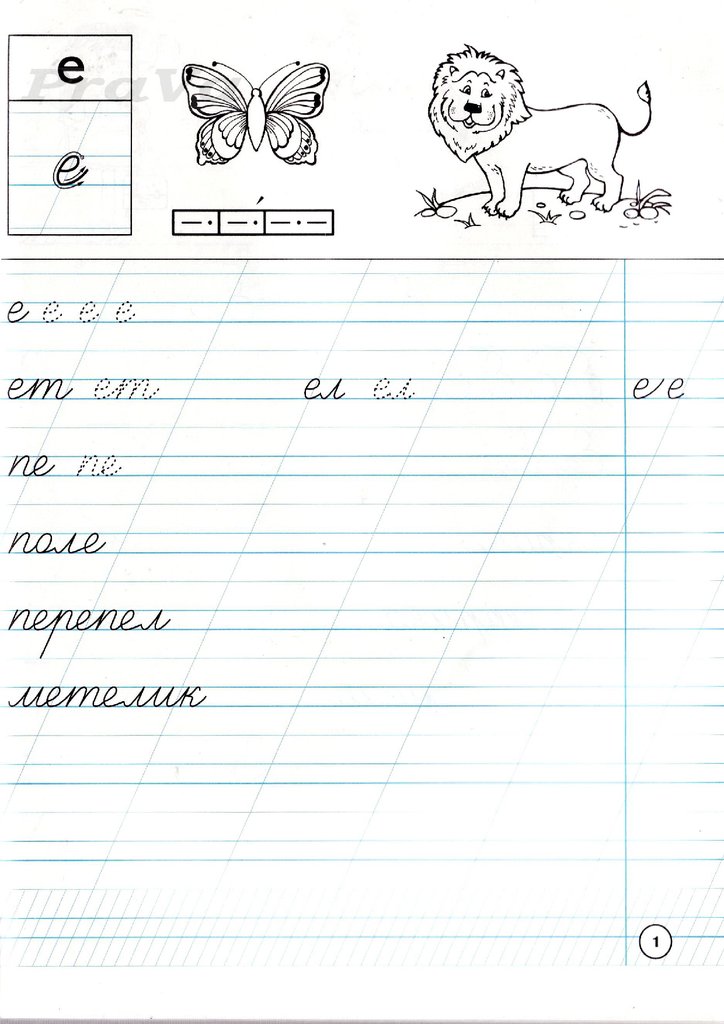 е
PraV
е
е е е е
ет ет ел ел е е
пе пе
поле
перепел
метелик
1